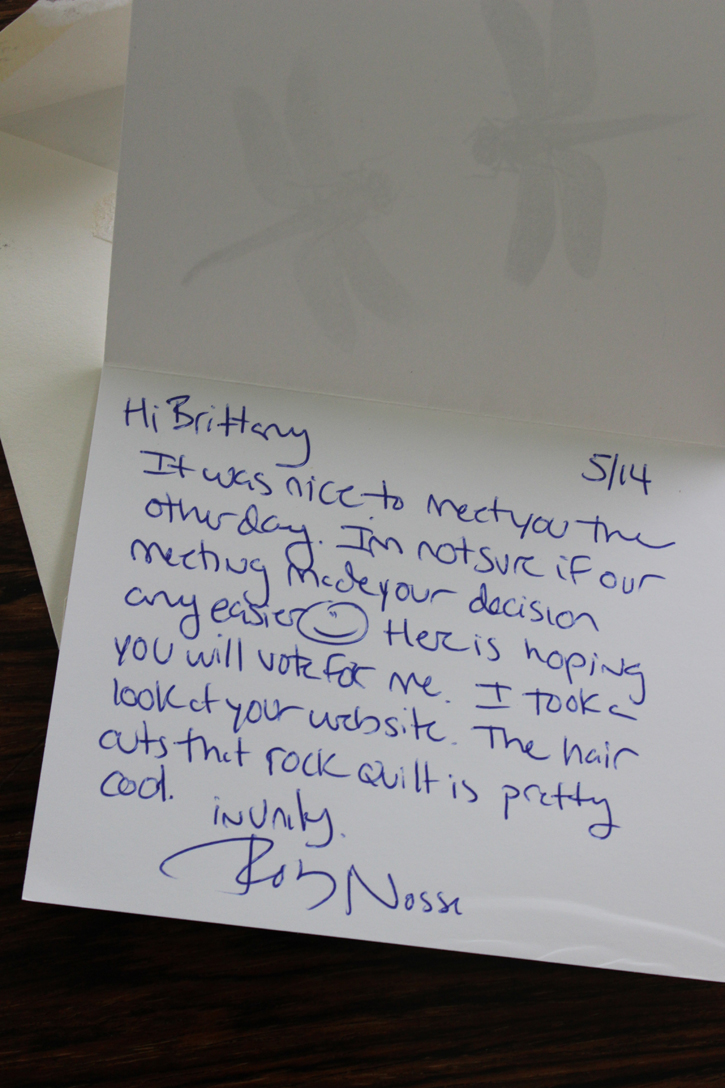 Hi Brittany
5/14
It was nice to meet you the
other day. I'm not sure if our
meeting made your decision
any easier ☺ Here is hoping
you will vote for me. I took a
look at your website. The hair
cuts that rock quilt is pretty
cool.
in unity.
Rob Nosse